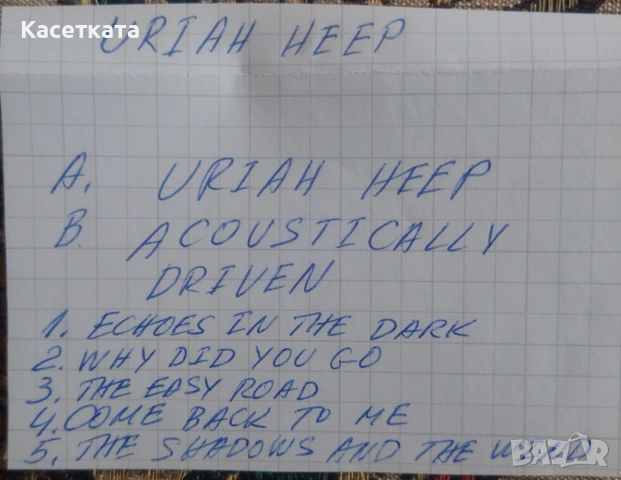 Касетката
URIAH HEEP
A. URIAH HEEP
B. ACOUSTICALLY
DRIVEN
1. ECHOES IN THE DARK
2. WHY DID YOU GO
3. THE EASY ROAD
4. COME BACK TO ME
5. THE SHADOWS AND THE WIND
BAZAR